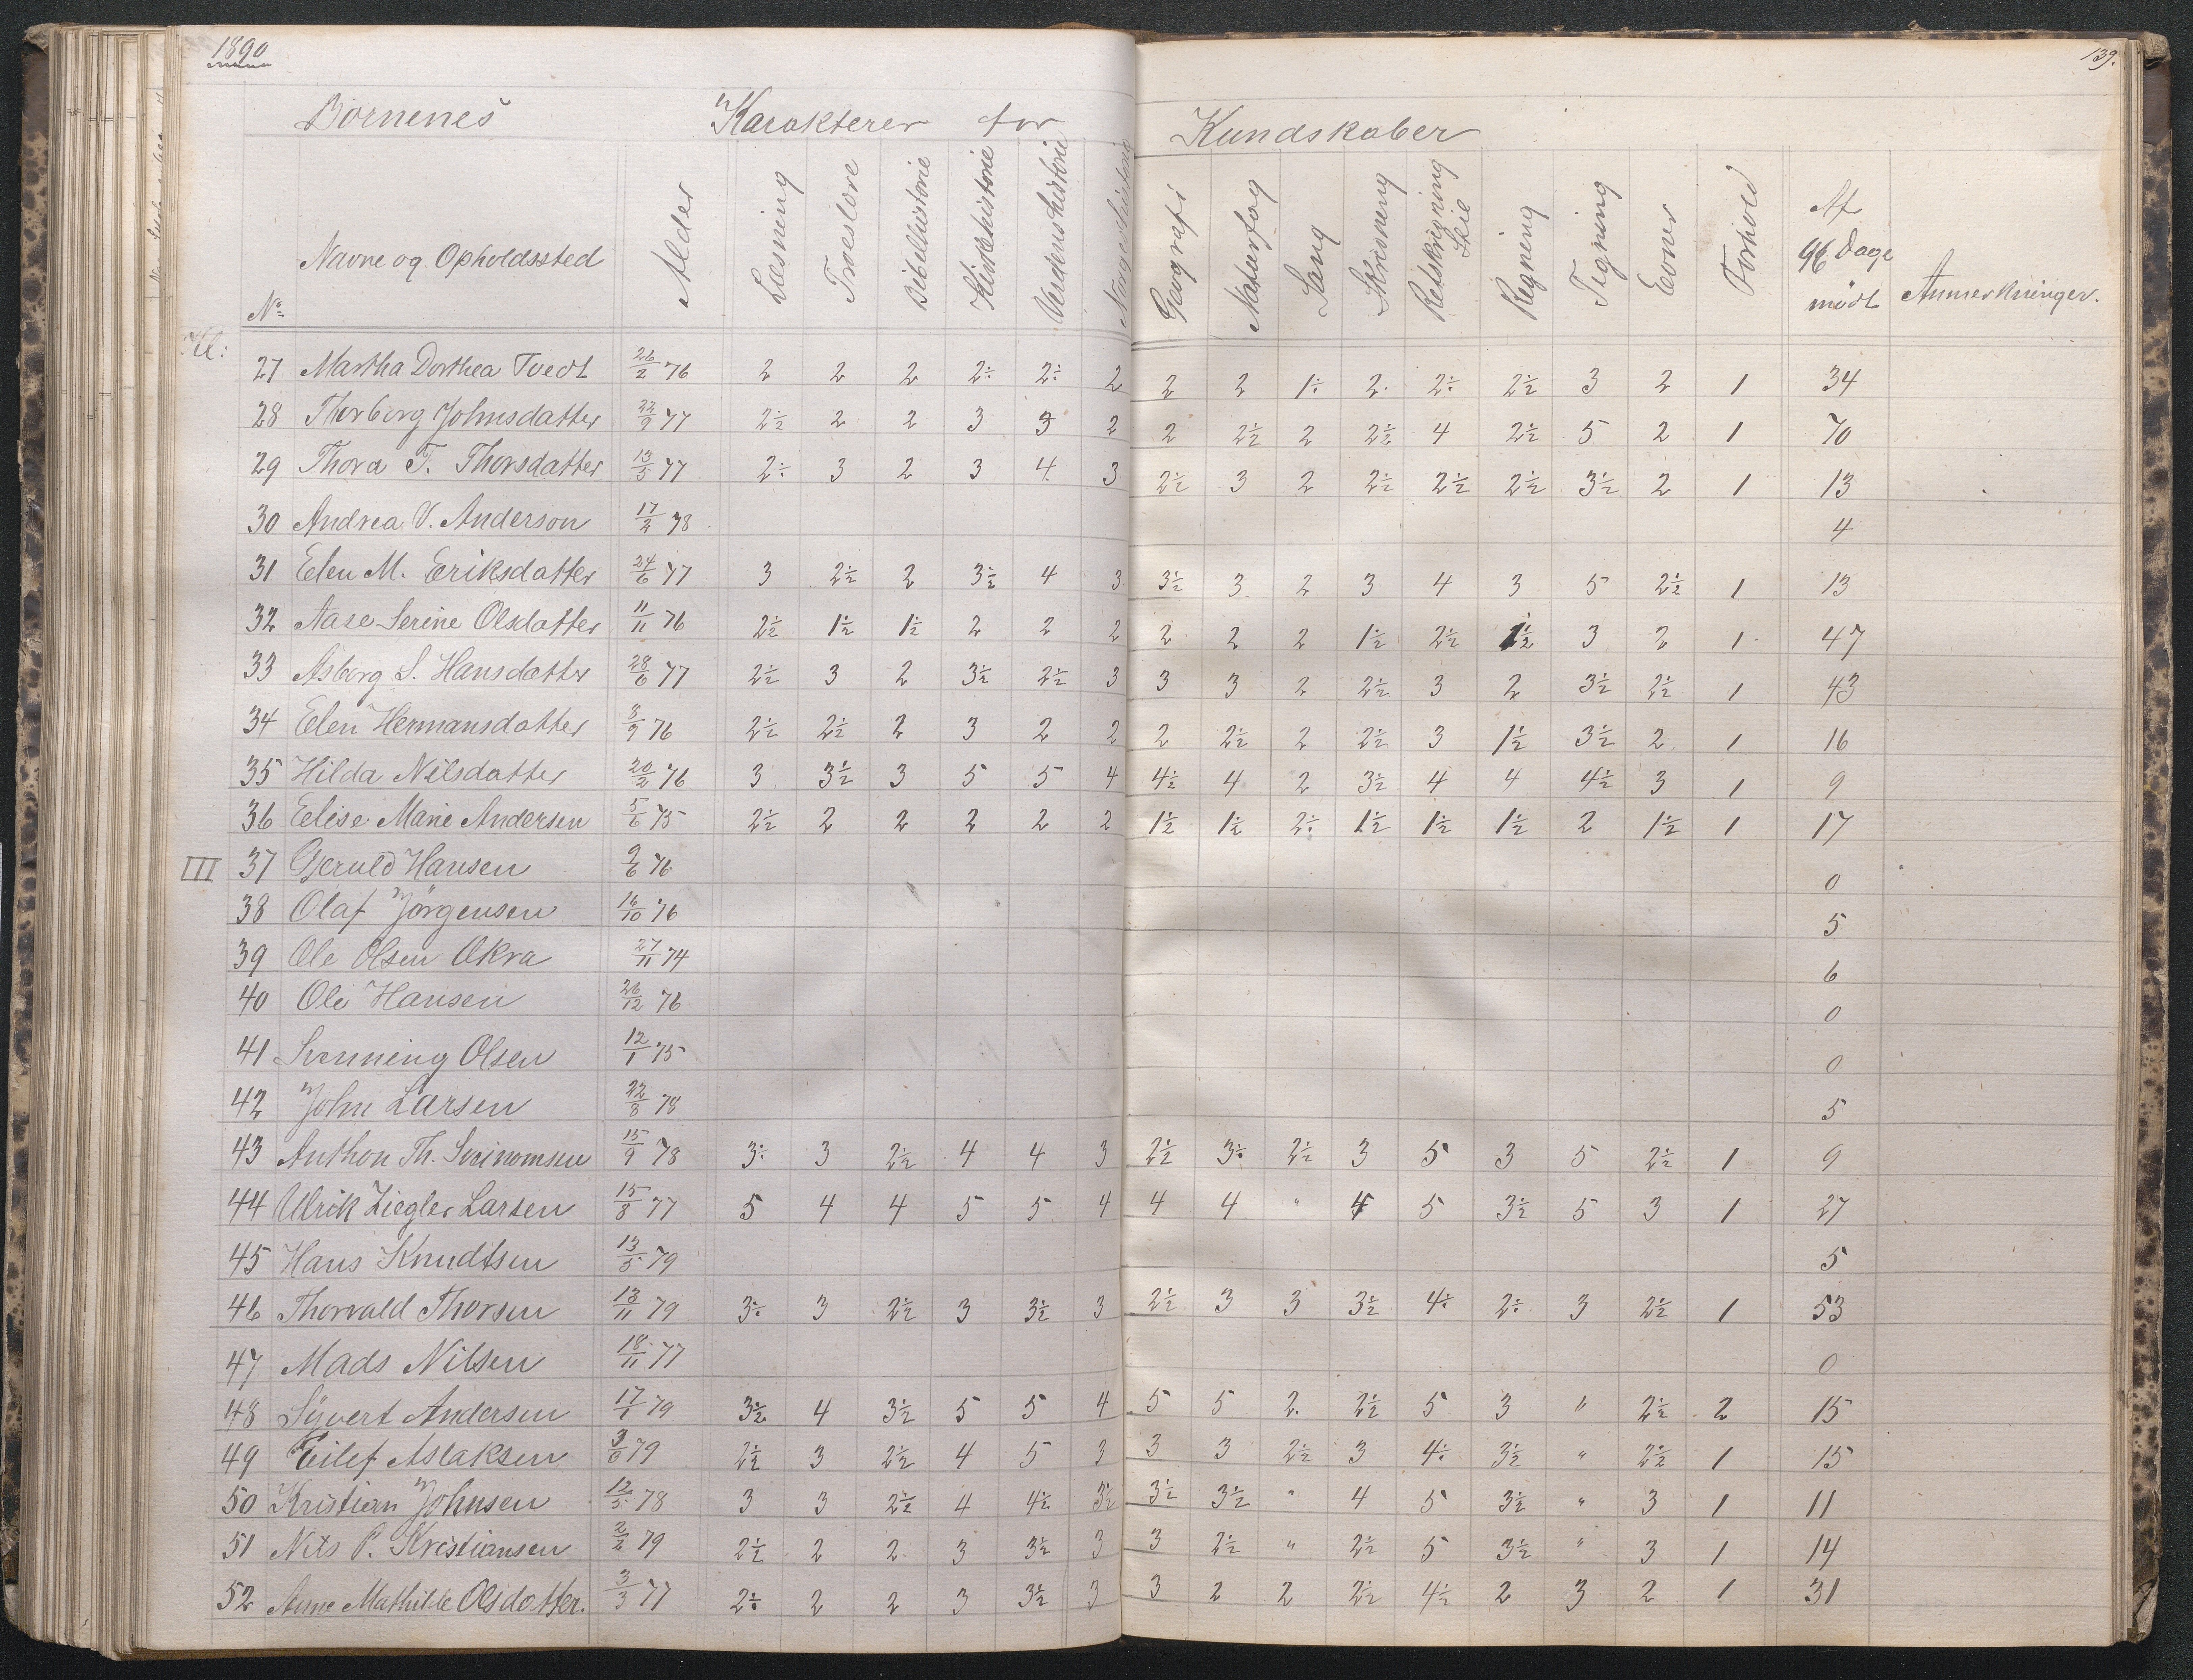 1890
139.
Börnenes Karakterer for Kundskaber
Nº Navne og Opholdssted Alder Læsning Troeslære Bibelhistorie Kirkehistorie Verdenshistorie Norgeshistorie Geografi Naturfag Sang Skrivning Retskrivning Stil Regning Tegning Evner Forhold Af 96 Dage mödt Anmerkninger.
Kl:
27 Martha Dorthea Tvedt 26/2 76 2 2 2 2÷ 2÷ 2 2 2 1÷ 2· 2÷ 2½ 3 2 1 34
28 Thorborg Johnsdatter 22/9 77 2½ 2 2 3 3 2 2 2½ 2 2½ 4 2½ 5 2 1 70
29 Thora T. Thorsdatter 13/5 77 2÷ 3 2 3 4 3 2½ 3 2 2½ 2½ 2½ 3½ 2 1 13
30 Andrea V. Anderson 17/2 78 4
31 Elen M. Eriksdatter 24/6 77 3 2½ 2 3½ 4 3 3½ 3 2 3 4 3 5 2½ 1 13
32 Aase Serine Olsdatter 11/11 76 2½ 1½ 1½ 2 2 2 2 2 2 1½ 2½ 1½ 3 2 1 47
33 Asborg S. Hansdatter 28/6 77 2½ 3 2 3½ 2½ 3 3 3 2 2½ 3 2 3½ 2½ 1 43
34 Elen Hermansdatter 8/9 76 2½ 2½ 2 3 2 2 2 2½ 2 2½ 3 1½ 3½ 2 1 16
35 Hilda Nilsdatter 20/2 76 3 3½ 3 5 5 4 4½ 4 2 3½ 4 4 4½ 3 1 9
36 Elise Marie Andersen 5/6 75 2½ 2 2 2 2 2 1½ 1½ 2÷ 1½ 1½ 1½ 2 1½ 1 17
III 37 Gjeruld Hansen 9/6 76 0
38 Olaf Jörgensen 16/10 76 5
39 Ole Olsen Okra 27/11 74 6
40 Ole Hansen 26/12 76 0
41 Svenning Olsen 12/1 75 0
42 John Larsen 22/8 78 5
43 Anthon Th. Sveinomsen 15/9 78 3÷ 3 2½ 4 4 3 2½ 3÷ 2½ 3 5 3 5 2½ 1 9
44 Ulrik Ziegler Larsen 15/8 77 5 4 4 5 5 4 4 4 " 4 5 3½ 5 3 1 27
45 Hans Knudtsen 13/5 79 5
46 Thorvald Thorsen 13/11 79 3÷ 3 2½ 3 3½ 3 2½ 3 3 3½ 4÷ 2÷ 3 2½ 1 53
47 Mads Nilsen 18/11 77 0
48 Syvert Andersen 17/1 79 3½ 4 3½ 5 5 4 5 5 2. 2½ 5 3 " 2½ 2 15
49 Eilef Aslaksen 3/6 79 2½ 3 2½ 4 5 3 3 3 2½ 3 4÷ 3½ " 2½ 1 15
50 Kristian Johnsen 12/5 78 3 3 2½ 4 4½ 3½ 3½ 3½ " 4 5 3½ " 3 1 11
51 Nils P. Kristiansen 2/2 79 2½ 2 2 3 3½ 3 3 2½ " 2½ 5 3½ " 3 1 14
52 Anne Mathilde Olsdatter. 3/3 77 2÷ 2 2 3 3½ 3 3 2 2 2½ 4½ 2 3 2 1 31